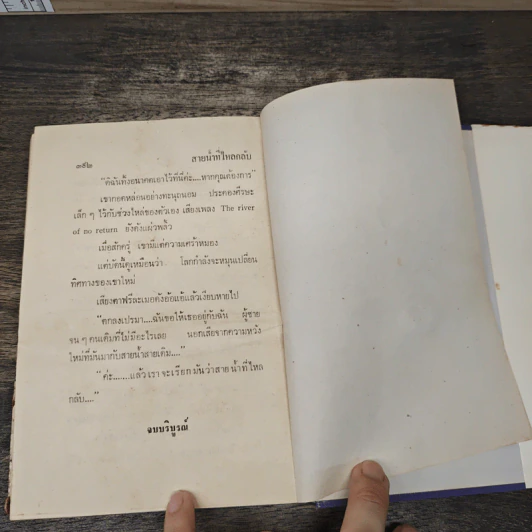 ๓๕๒ สายน้ำที่ไหลกลับ
“ดิฉันทิ้งอนาคตเอาไว้ที่นี่ค่ะ....หากคุณต้องการ”
เขากอดหล่อนอย่างทะนุถนอม ประคองศีรษะ
เล็ก ๆ ไว้กับช่วงไหล่ของตัวเอง เสียงเพลง The river
of no return ยังดังแผ่วพลิ้ว
เมื่อสักครู่ เขามีแต่ความเศร้าหมอง
แต่บัดนี้ดูเหมือนว่า โลกกำลังจะหมุนเปลี่ยน
ทิศทางของเขาใหม่
เสียงคาฟรีละเมอดังอ้อแอ้แล้วเงียบหายไป
“ตกลงเปรมา....ฉันขอให้เธออยู่กับฉัน ผู้ชาย
จน ๆ คนเดิมที่ไม่มีอะไรเลย นอกเสียจากความหวัง
ใหม่ที่มันมากับสายน้ำสายเดิม....”
“ค่ะ........แล้วเราจะเรียกมันว่าสายน้ำที่ไหล
กลับ....”
จบบริบูรณ์